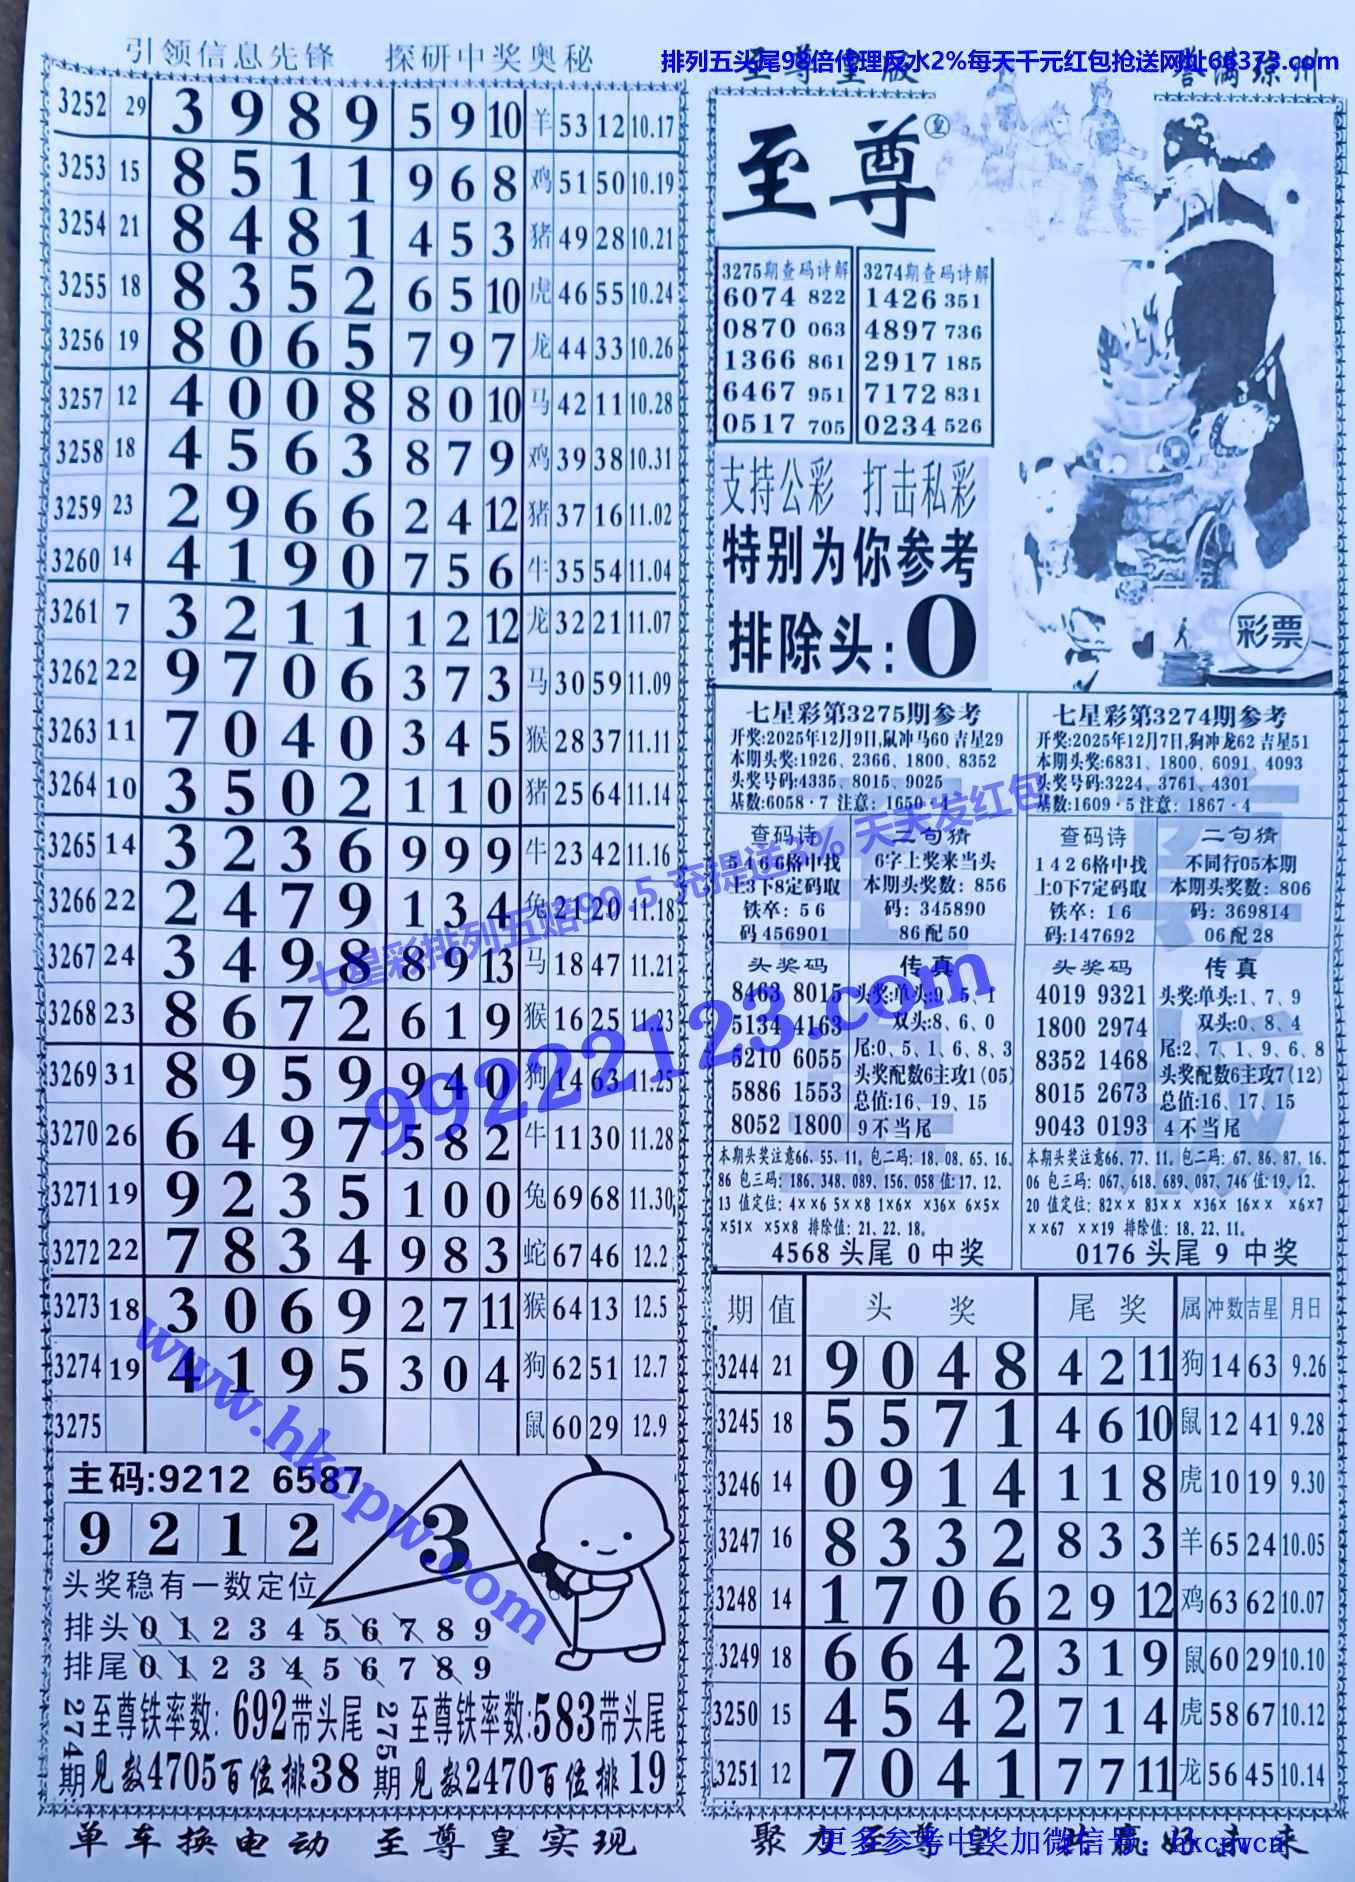 引领信息先锋 探研中奖奥秘
排列五头尾98倍代理反水2%每天千元红包抢送网址66373.com
3252 29 3 9 8 9 5 9 10 羊 53 12 10.17
3253 15 8 5 1 1 9 6 8 鸡 51 50 10.19
3254 21 8 4 8 1 4 5 3 猪 49 28 10.21
3255 18 8 3 5 2 6 5 10 虎 46 55 10.24
3256 19 8 0 6 5 7 9 7 龙 44 33 10.26
3257 12 4 0 0 8 8 0 10 马 42 11 10.28
3258 18 4 5 6 3 8 7 9 鸡 39 38 10.31
3259 23 2 9 6 6 2 4 12 猪 37 16 11.02
3260 14 4 1 9 0 7 5 6 牛 35 54 11.04
3261 7 3 2 1 1 1 2 12 龙 32 21 11.07
3262 22 9 7 0 6 3 7 3 马 30 59 11.09
3263 11 7 0 4 0 3 4 5 猴 28 37 11.11
3264 10 3 5 0 2 1 1 0 猪 25 64 11.14
3265 14 3 2 3 6 9 9 9 牛 23 42 11.16
3266 22 2 4 7 9 1 3 4 兔 21 20 11.18
3267 24 3 4 9 8 8 9 13 马 18 47 11.21
3268 23 8 6 7 2 6 1 9 猴 16 25 11.23
3269 31 8 9 5 9 9 4 0 狗 14 63 11.25
3270 26 6 4 9 7 5 8 2 牛 11 30 11.28
3271 19 9 2 3 5 1 0 0 兔 69 68 11.30
3272 22 7 8 3 4 9 8 3 蛇 67 46 12.2
3273 18 3 0 6 9 2 7 11 猴 64 13 12.5
3274 19 4 1 9 5 3 0 4 狗 62 51 12.7
3275 鼠 60 29 12.9
主码:9212 6587
9 2 1 2
3
头奖稳有一数定位
排头 0 1 2 3 4 5 6 7 8 9
排尾 0 1 2 3 4 5 6 7 8 9
274期 至尊铁率数: 692带头尾
见数4705百位排38
275期 至尊铁率数:583带头尾
见数2470百位排19
单车换电动 至尊皇实现
至尊皇版
誉满琼州
至尊皇
3275期查码诗解
6074 822
0870 063
1366 861
6467 951
0517 705
3274期查码诗解
1426 351
4897 736
2917 185
7172 831
0234 526
支持公彩 打击私彩
特别为你参考
排除头:0
彩票
七星彩第3275期参考
开奖:2025年12月9日,鼠冲马60 吉星29
本期头奖:1926、2366、1800、8352
头奖号码:4335、8015、9025
基数:6058·7 注意: 1650·4
查码诗
5 4 6 6格中找
上3下8定码取
铁卒: 5 6
码 456901
二句猜
6字上奖来当头
本期头奖数: 856
码: 345890
86 配 50
头奖码
8463 8015
5134 4163
5210 6055
5886 1553
8052 1800
传真
头奖:单头:9、5、1
双头:8、6、0
尾:0、5、1、6、8、3
头奖配数6主攻1(05)
总值:16、19、15
9 不当尾
本期头奖注意66、55、11。包二码: 18、08、65、16、
86 包三码: 186、348、089、156、058 值: 17、12、
13 值定位: 4××6 5××8 1×6× ×36× 6×5×
×51× ×5×8 排除值: 21、22、18。
4568 头尾 0 中奖
七星彩第3274期参考
开奖:2025年12月7日,狗冲龙62 吉星51
本期头奖:6831、1800、6091、4093
头奖号码:3224、3761、4301
基数:1609·5 注意: 1867·4
查码诗
1 4 2 6格中找
上0下7定码取
铁卒: 1 6
码:147692
二句猜
不同行05本期
本期头奖数: 806
码: 369814
06 配 28
头奖码
4019 9321
1800 2974
8352 1468
8015 2673
9043 0193
传真
头奖:单头:1、7、9
双头:0、8、4
尾:2、7、1、9、6、8
头奖配数6主攻7(12)
总值:16、17、15
4 不当尾
本期头奖注意66、77、11。包二码: 67、86、87、16、
06 包三码: 067、618、689、087、746 值: 19、12、
20 值定位: 82×× 83×× ×36× 16×× ×6×7
××67 ××19 排除值: 18、22、11。
0176 头尾 9 中奖
期 值 头奖 尾奖 属 冲数 吉星 月日
3244 21 9 0 4 8 4 2 11 狗 14 63 9.26
3245 18 5 5 7 1 4 6 10 鼠 12 41 9.28
3246 14 0 9 1 4 1 1 8 虎 10 19 9.30
3247 16 8 3 3 2 8 3 3 羊 65 24 10.05
3248 14 1 7 0 6 2 9 12 鸡 63 62 10.07
3249 18 6 6 4 2 3 1 9 鼠 60 29 10.10
3250 15 4 5 4 2 7 1 4 虎 58 67 10.12
3251 12 7 0 4 1 7 7 11 龙 56 45 10.14
聚力至尊皇
更多参考中奖加微信号: hkcpwcn
七星彩排列五赔99.5 充提送3% 天天发红包
99222123.com
www.hkcpw.com